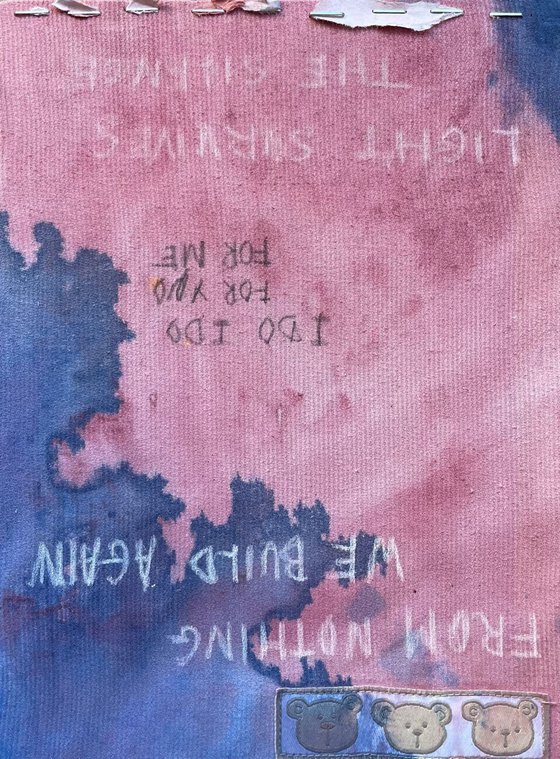 FROM NOTHING
WE BUILD AGAIN
I DO I DO
FOR YOU
FOR ME
LIGHT SURVIVES
THE SILENCE